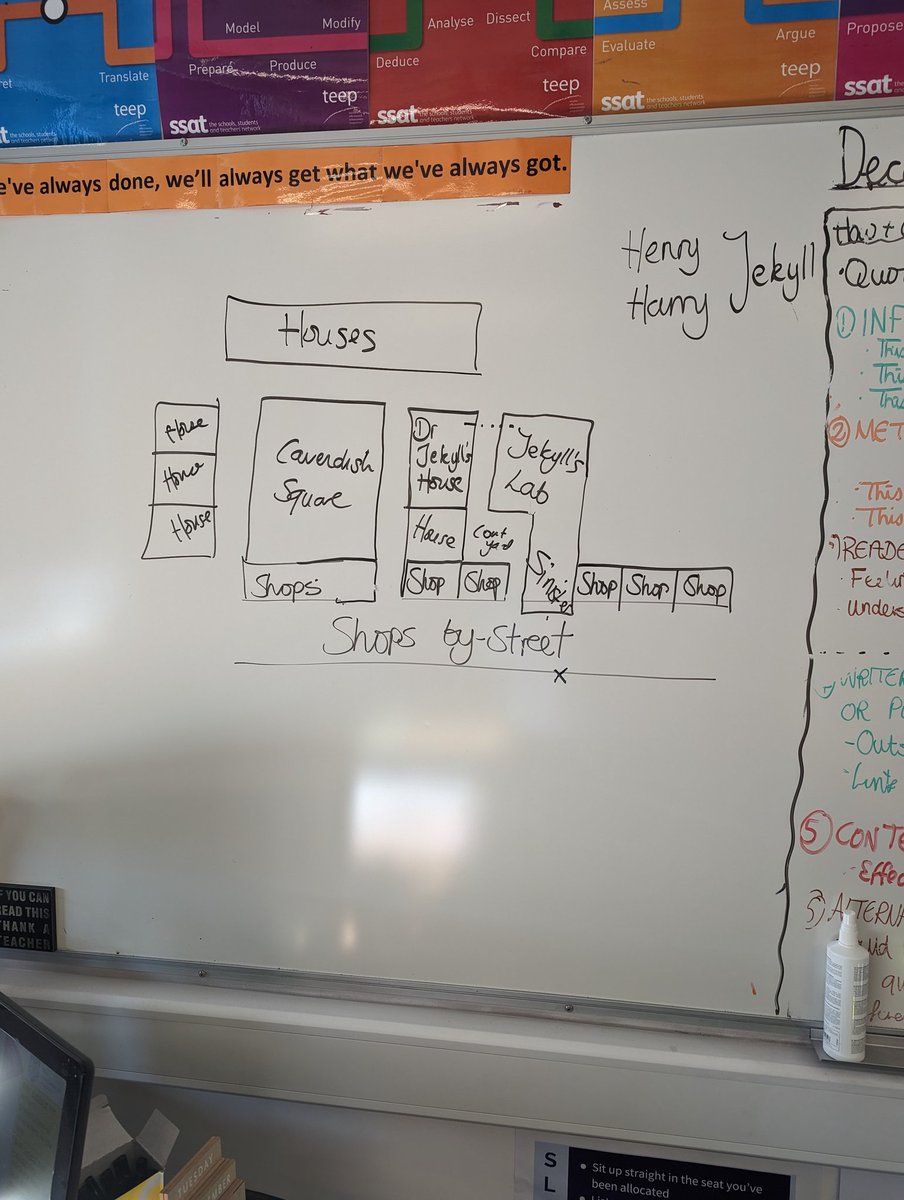 Model
Modify
Prepare
Produce
Translate
teep
teep
ssat the schools, students and teachers network
Analyse
Dissect
Deduce
Compare
teep
ssat the schools, students and teachers network
Assess
Evaluate
Argue
teep
ssat the schools, students and teachers network
Propose
ssat
've always done, we'll always get what we've always got.
Henry
Harry
Jekyll
Houses
House
House
House
Cavendish
Square
Shops
Dr
Jekyll's
House
House
Shop
Shop
Jekyll's
Lab
Shop
Shop
Shop
Shops by-Street
x
Quo
① INF
This
Thi
② MET
This
This
READE
unders
WRITER
OR
- Outs
⑤ CONTE
- Effec
5) ALTERNA
F YOU CAN
READ THIS
THANK A
TEACHER
TUESDAY
S
L
• Sit up straight in the seat you've
been allocated